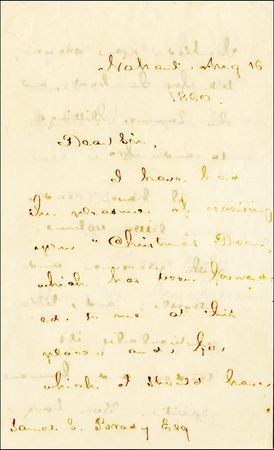 Nahant Aug 16
1860.
Dear Sir,
I have had
the pleasure of receiving
your "Christmas
which has been forward-
ed to me at this
place; and, for
which I should have
James G. Esq